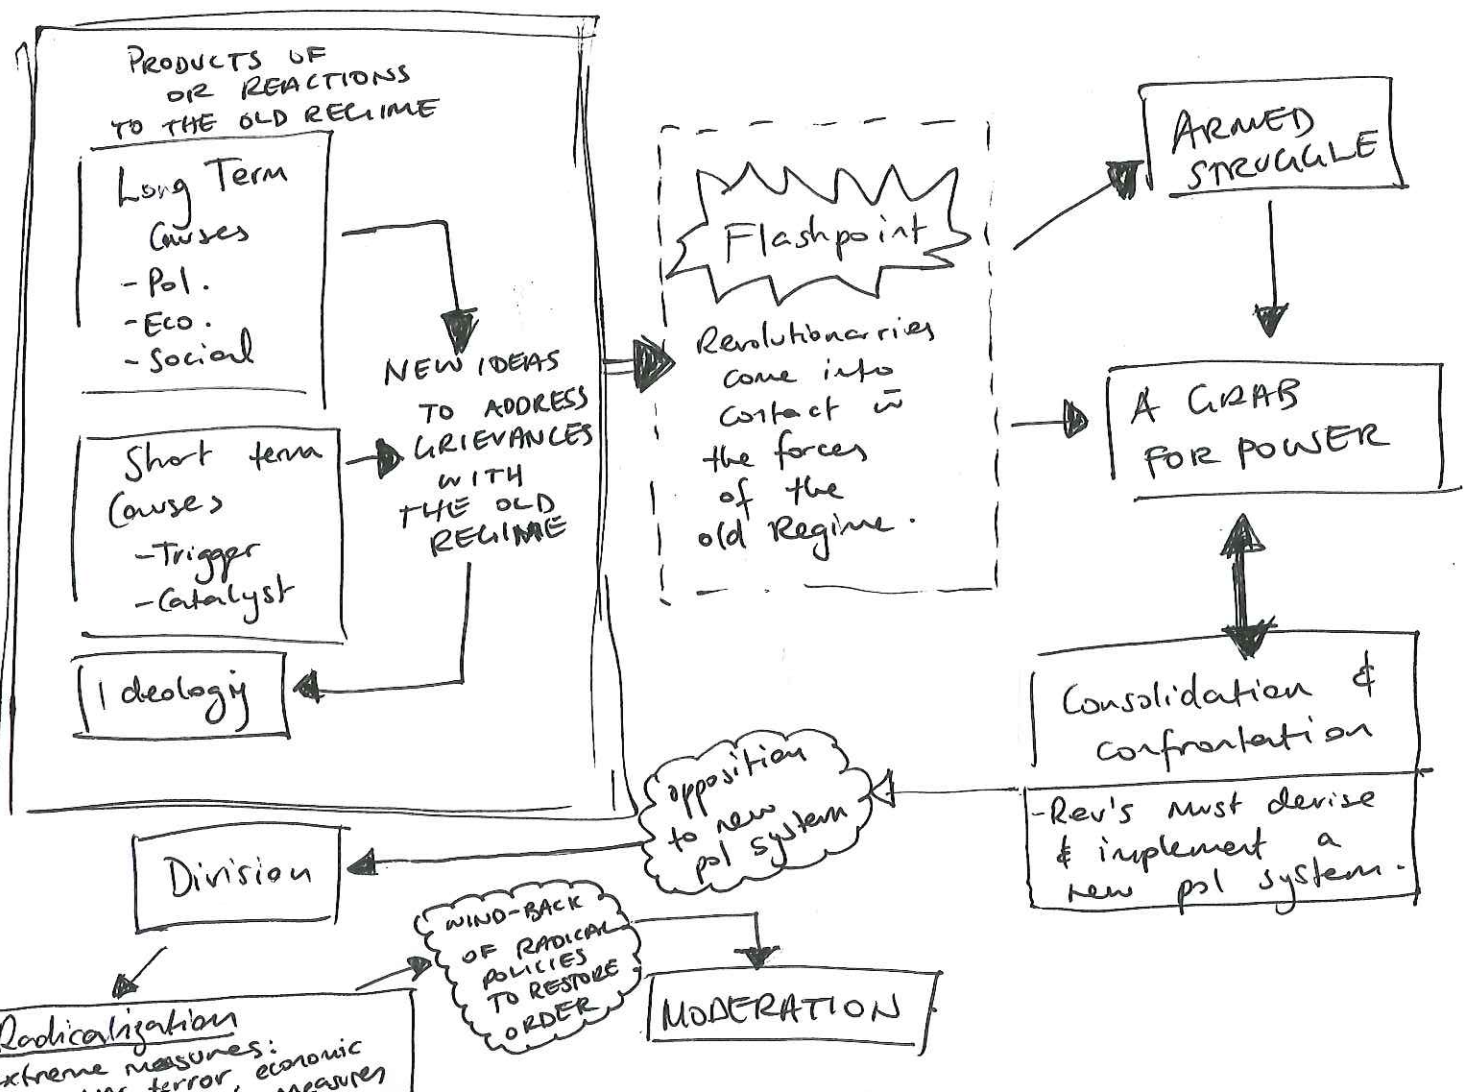 PRODUCTS OF
OR REACTIONS
TO THE OLD REGIME
Long Term
Causes
- Pol.
- Eco.
- Social
Short term
Causes
- Trigger
- Catalyst
Ideology
NEW IDEAS
TO ADDRESS
GRIEVANCES
WITH
THE OLD
REGIME
Flashpoint
Revolutionarries
come into
contact w̄
the forces
of the
old Regime.
ARMED
STRUGGLE
A GRAB
FOR POWER
Consolidation &
confrontation
- Rev's must devise
& implement a
new pol system.
opposition
to new
pol system
Division
Radicalization
extreme measures:
terror economic
measures
WIND-BACK
OF RADICAL
POLICIES
TO RESTORE
ORDER
MODERATION